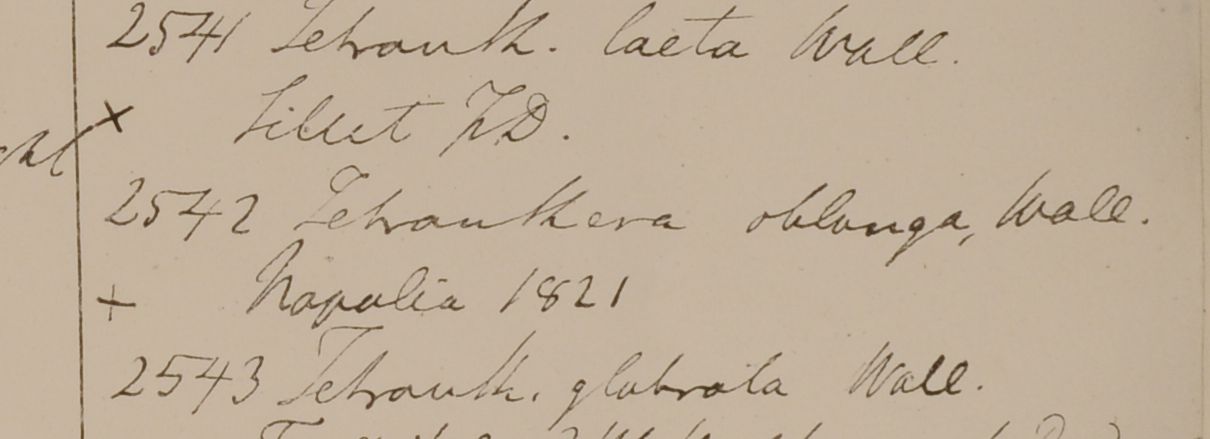 2541 Tetranth. laeta Wall.
× Sillet FD.
2542 Tetranthera oblonga, Wall.
+ Napalia 1821
2543 Tetranth. glabrata Wall.